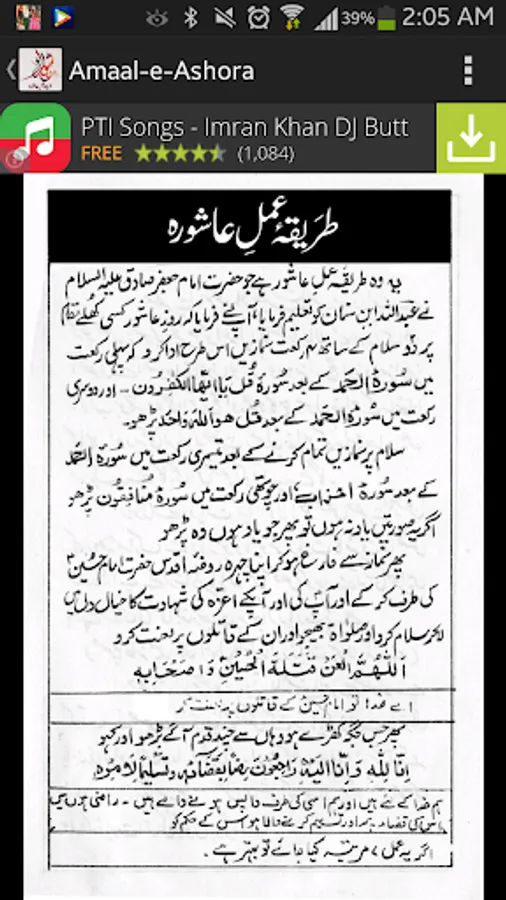 39% 2:05 AM
Amaal-e-Ashora
PTI Songs - Imran Khan DJ Butt
FREE (1,084)
طریقۂ عملِ عاشورہ
یہ وہ طریقہ عمل عاشور ہے جو حضرت امام جعفر صادق علیہ السلام
نے عبداللہ ابن سنان کو تعلیم فرمایا، آپنے فرمایا کہ روزِ عاشور کسی کھلے مقام
پر دو سلام کے ساتھ ۴ رکعت نمازیں اس طرح ادا کرو کہ پہلی رکعت
میں سورۃ الحمد کے بعد سورۃ قل یا ایھا الکفرون - اور دوسری
رکعت میں سورۃ الحمد کے بعد قل ھو اللہ واحد پڑھو۔
سلام پر نمازیں تمام کرنے کے بعد تیسری رکعت میں سورۃ الحمد
کے بعد سورۃ احزاب اور چوتھی رکعت میں سورۃ منافقون پڑھو
اگر یہ صورتیں یاد نہ ہوں تو پھر جو یاد ہوں وہ پڑھو
پھر نماز سے فارغ ہو کر اپنا چہرہ روضۂ اقدس حضرت امام حسینؑ
کی طرف کر کے اور آپ کی اور آپکے اعزہ کی شہادت کا خیال دل میں
لاکر سلام کرو اور صلواۃ بھیجو اور ان کے قاتلوں پر لعنت کرو
اللّٰھم العن قتلۃ الحسین و اصحابہ
اے خدا! تو امام حسین کے قاتلوں پر لعنت کر
پھر جس جگہ کھڑے ہو وہاں سے چند قدم آگے بڑھو اور کہو
انا للہ و انا الیہ راجعون رضا بقضائہ و تسلیما لامرہ
ہم خدا کے لئے ہیں اور ہم اسی کی طرف واپس ہونے والے ہیں - راضی ہوں میں
اس کی قضا پر اور تسلیم کرنے والا ہوں اس کے حکم کو
اگر یہ عمل ۷ مرتبہ کیا جائے تو بہتر ہے۔